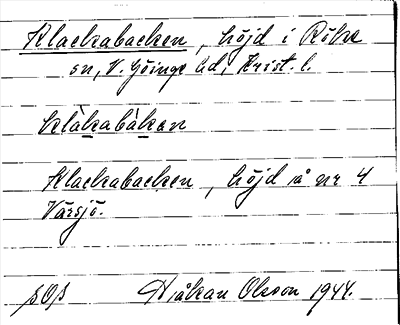 Klackabacken, höjd i Röke
sn, V. Göinge hd, Krist. l.
klàkabàkan
Klackabacken, höjd å nr 4
Värsjö.
Håkan Olsson 1944.